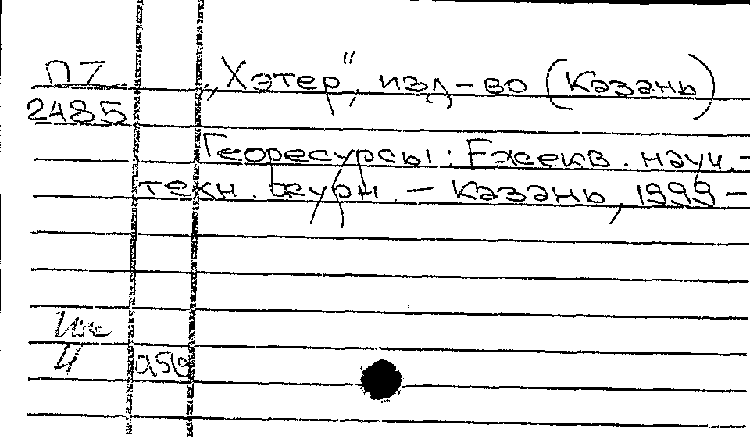 П7 „Хэтер", изд-во (Казань)
2485
Георесурсы: Ежекв. науч.-
техн. журн. – Казань, 1999 –